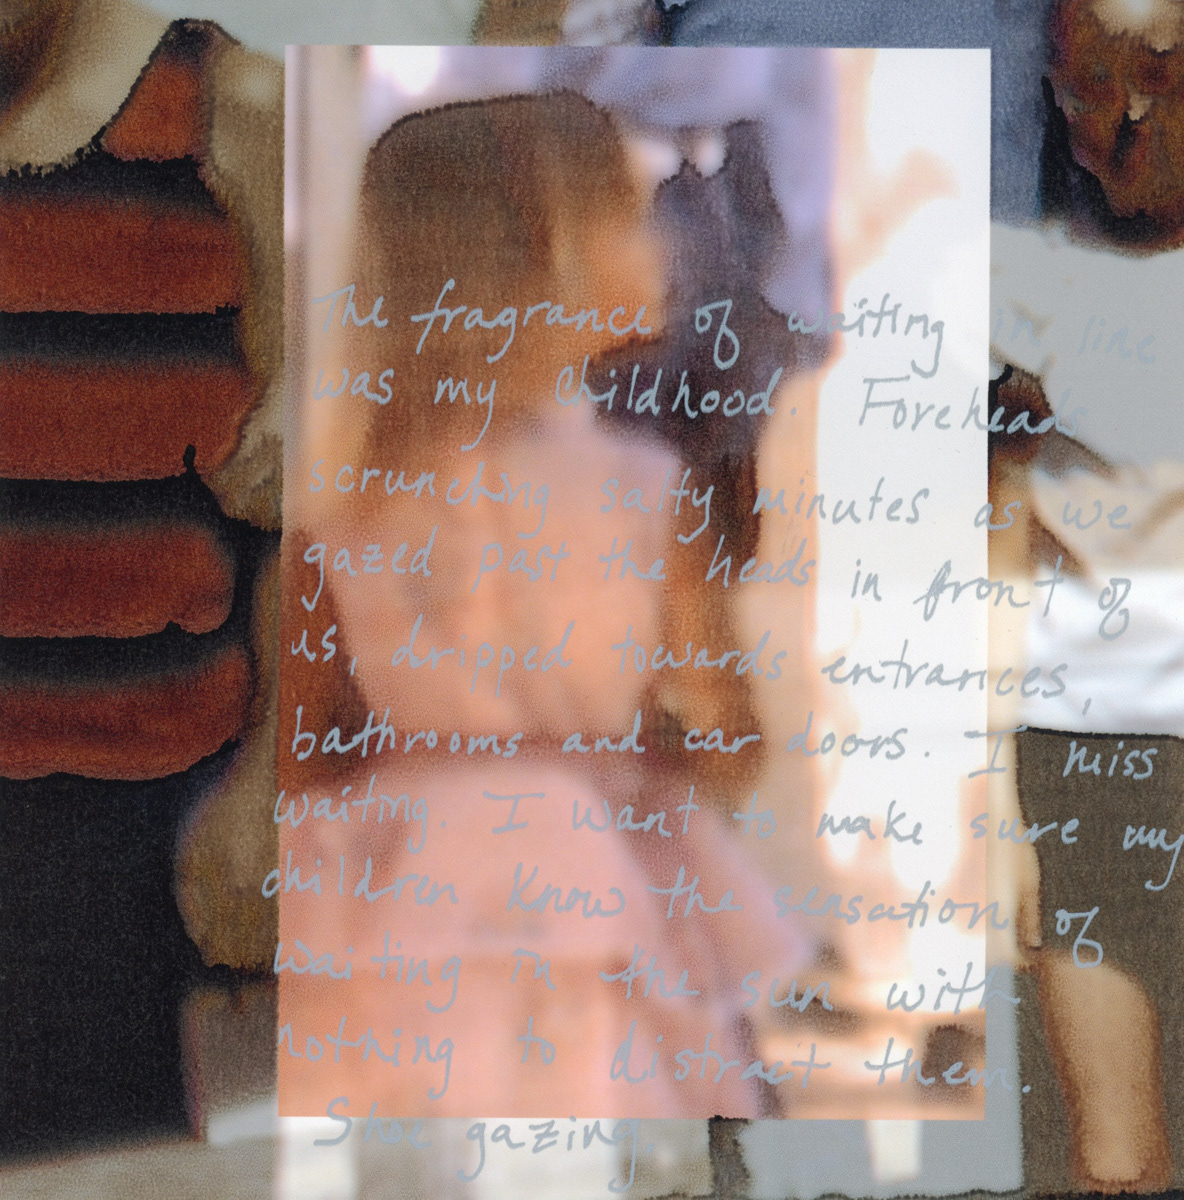 The fragrance of waiting in line
was my childhood. Foreheads
scrunching salty minutes as we
gazed past the heads in front of
us, dripped towards entrances,
bathrooms and car doors. I miss
waiting. I want to make sure my
children know the sensation of
waiting in the sun with
nothing to distract them.
Shoe gazing.